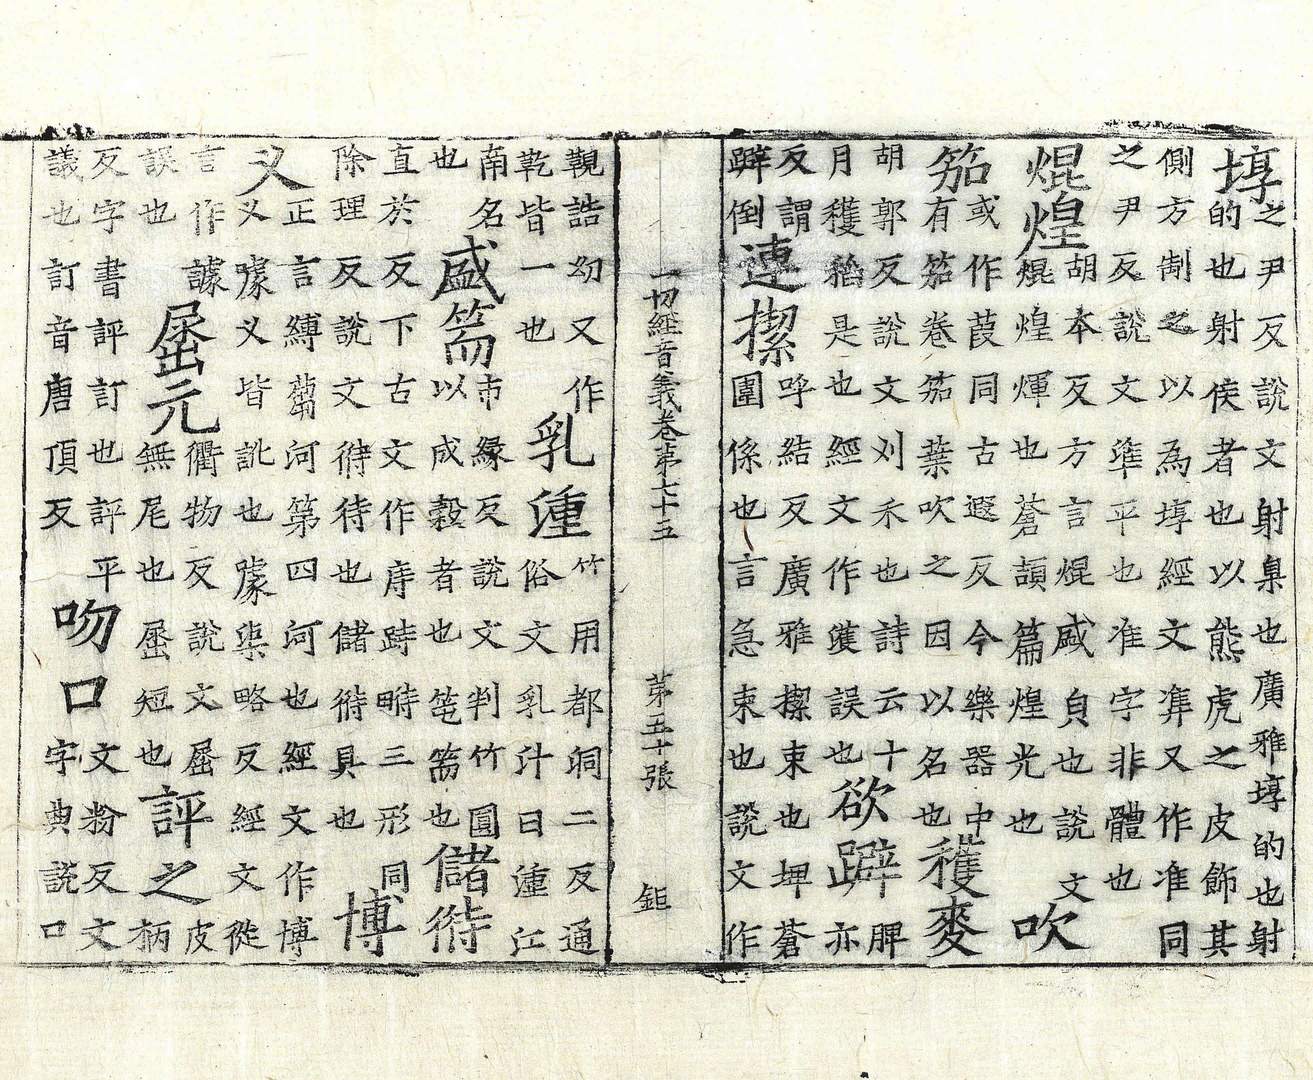 埻之尹反說文射臬也廣雅埻的也射
的也射侯者也以熊虎之皮飾其
側方制之以為埻經文凖又作准同
之尹反說文準平也准字非體也
焜煌胡本反方言焜咸貟也說文
焜煌煇也蒼頡篇煌光也吹
笳或作葭同古遐反今樂器中
有笳卷笳葉吹之因以名也穫麥
胡郭反說文刈禾也詩云十
月穫稻是也經文作誤也欲躃脾
亦
反謂
躃倒連呼結反廣雅束也埤蒼
圍係也言急束也說文作
一切經音義卷第七十五 第五十張 鉅
觀誥㓜又作
乾皆一也乳湩竹用都洞二反通
俗文乳汁曰湩江
南名
也盛篅市緣反說文判竹圓
以成穀者也篅也儲偫
直於反下古文作庤跱畤三形同
除理反說文偫待也儲偫具也博
叉正言縛蒭河第四河也經文作博
叉叉皆訛也渠略反經文從
言作據
誤也屈元衢物反說文屈
無尾也屈短也評之皮
柄
反字書評訂也評平
議也訂音唐頂反吻口文粉反文
字典說口